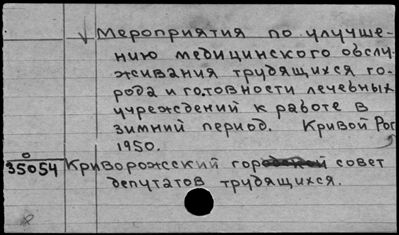 Мероприятия по улучше-
нию медицинского обслу-
живания трудящихся го-
рода и готовности лечебных
учреждений к работе в
зимний период. Кривой Рог
1950.
О
35054 Криворожский городской совет
депутатов трудящихся.